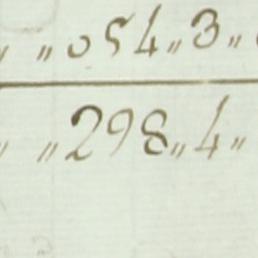 „ „054„3„
„ „298„4„